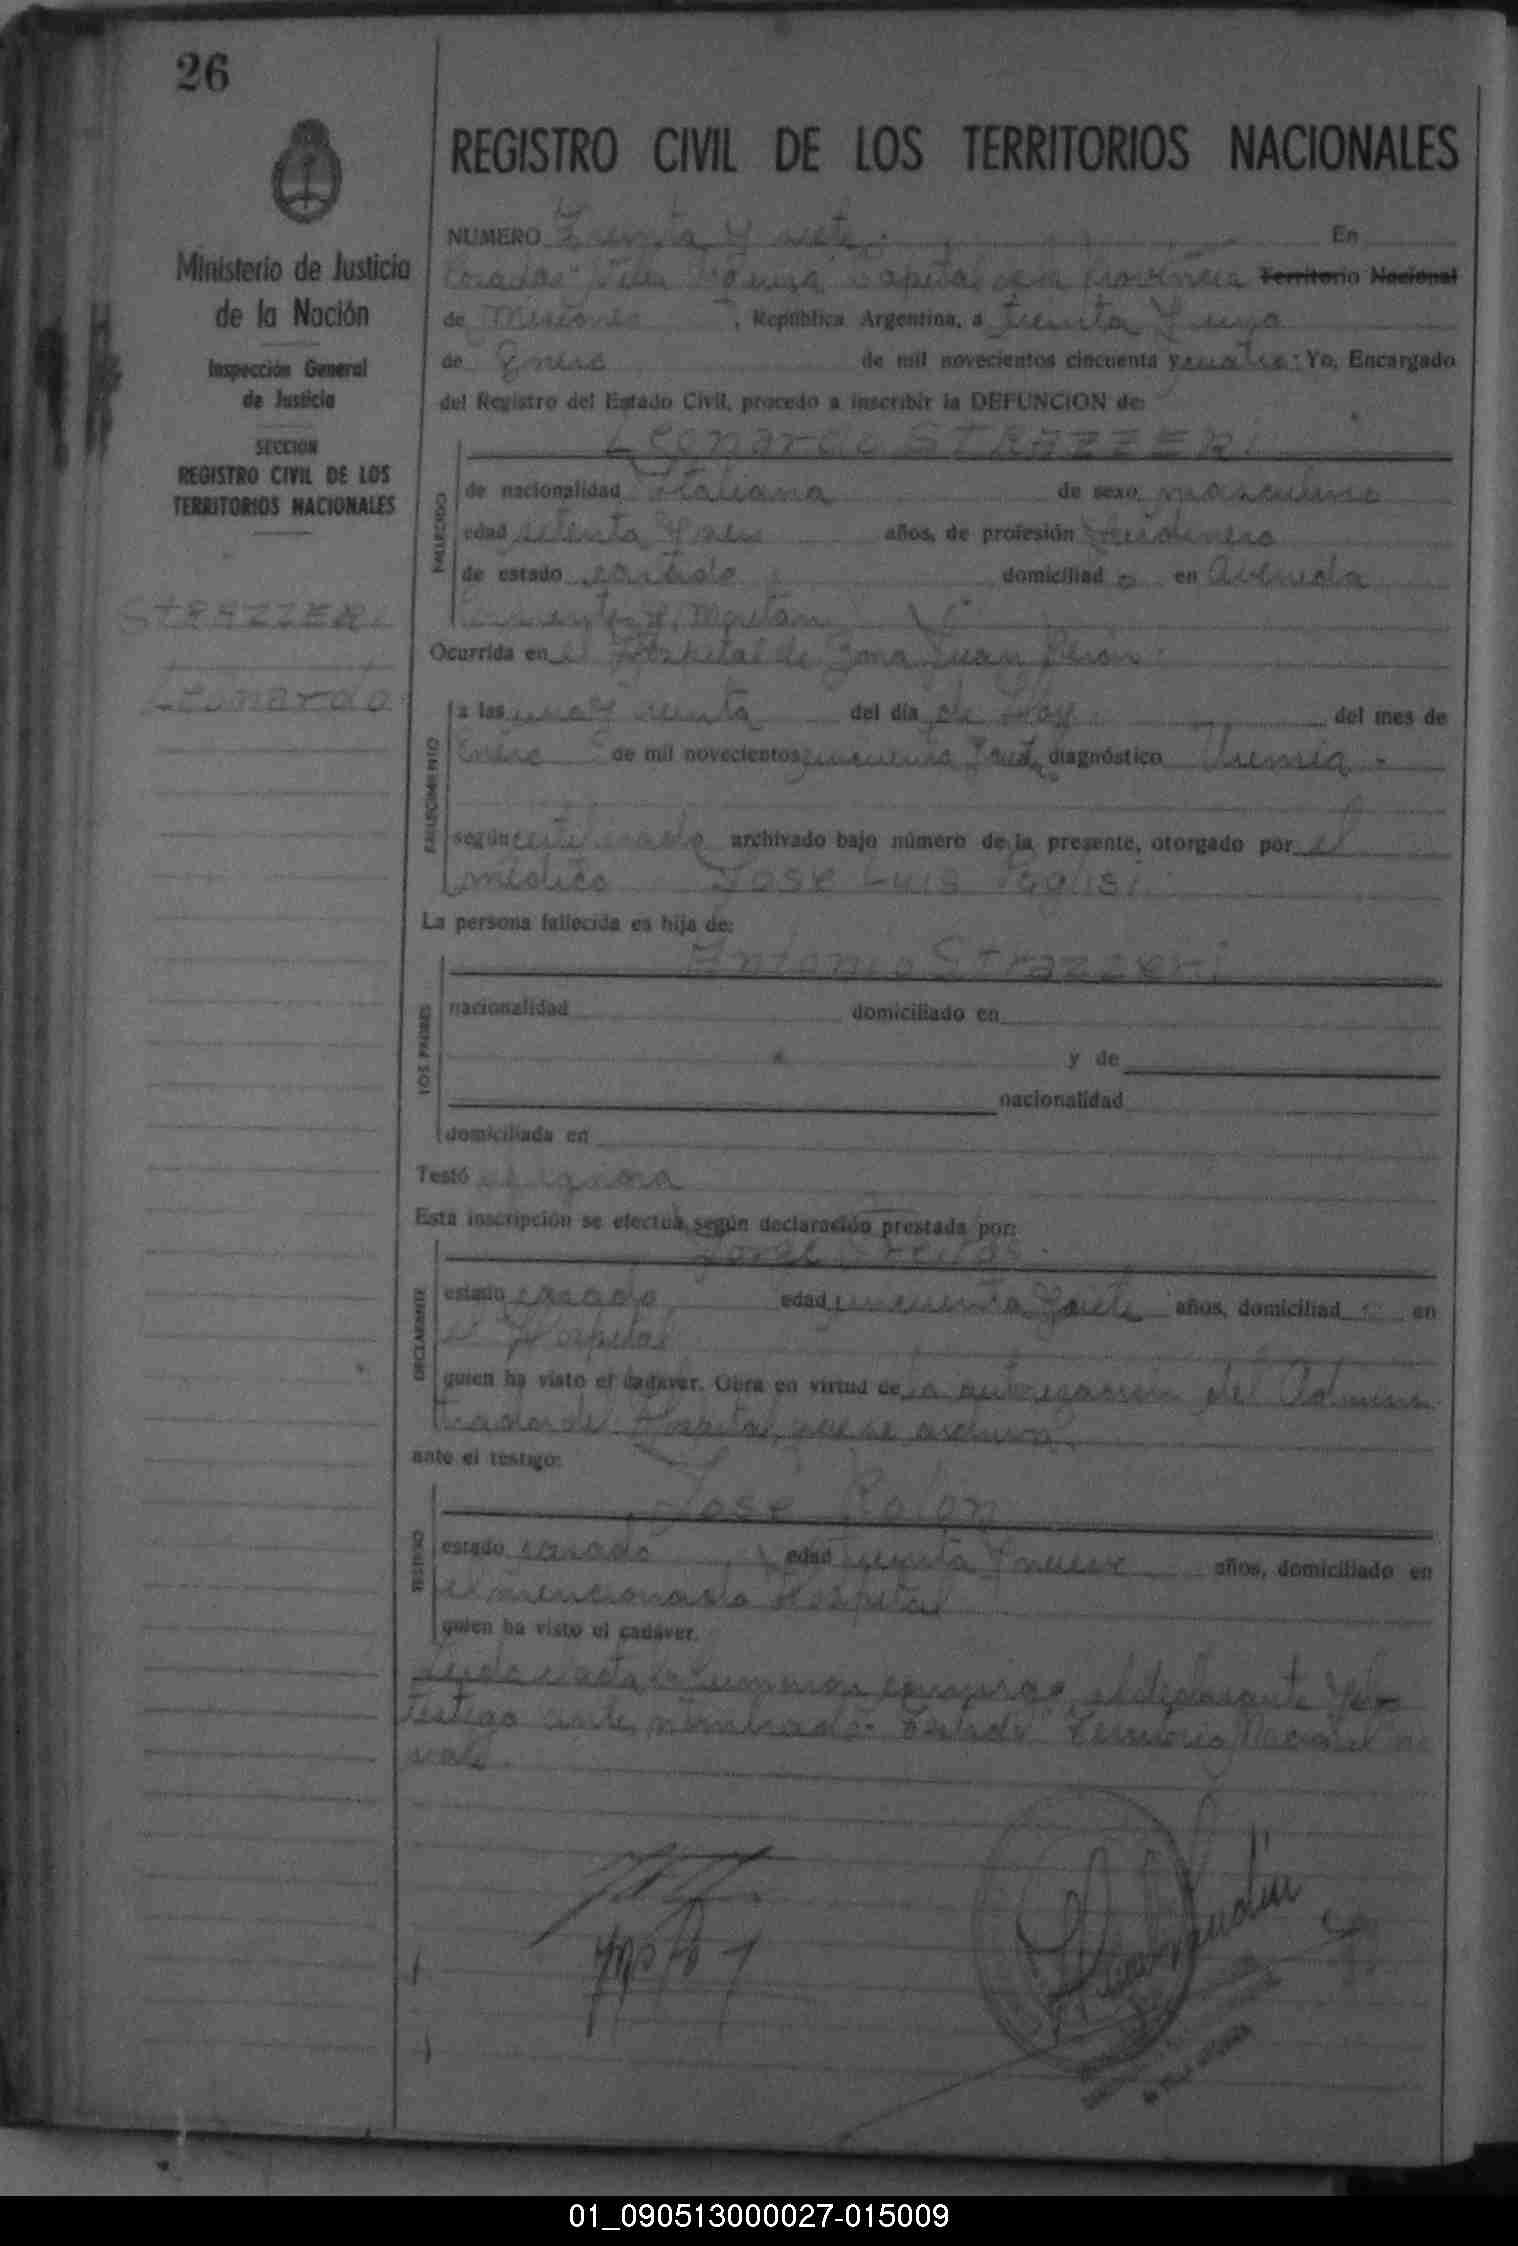 26
REGISTRO CIVIL DE LOS TERRITORIOS NACIONALES
Ministerio de Justicia
de la Nación
Inspección General
de Justicia
SECCION
REGISTRO CIVIL DE LOS
TERRITORIOS NACIONALES
STRAZZERI
Leonardo
NUMERO Treinta y siete. En
Posadas Capital de la Provincia Territorio Nacional
de Misiones, República Argentina, a treinta y uno
de Enero de mil novecientos cincuenta y cuatro. Yo, Encargado
del Registro del Estado Civil, procedo a inscribir la DEFUNCION de:
Leonardo STRAZZERI
FALLECIDO
de nacionalidad Italiana de sexo masculino
edad setenta y años, de profesión
de estado casado domiciliado en Avenida
Ocurrida en el Hospital de Zona Juan Perón
FALLECIMIENTO
a las una y treinta del día de hoy del mes de
Enero de mil novecientos cincuenta y cuatro diagnóstico Uremia.
según certificado archivado bajo número de la presente, otorgado por el
médico Jose Luis Puglisi
La persona fallecida es hija de:
LOS PADRES
Antonio Strazzeri
nacionalidad domiciliado en
y de
nacionalidad
domiciliada en
Testó se ignora
Esta inscripción se efectúa según declaración prestada por:
DECLARANTE
Jorge
estado casado edad cincuenta y siete años, domiciliado en
el Hospital
quien ha visto el cadáver. Obra en virtud de la autorización del Adminis
trador del Hospital, que se archiva.
ante el testigo:
TESTIGO
Jose Rolon
estado casado edad treinta y nueve años, domiciliado en
el mencionado Hospital
quien ha visto el cadáver.
Leida el acta la firman conmigo, el declarante y el
testigo ante nombrado. Testado: Territorio Nacional no
vale.
01_090513000027-015009